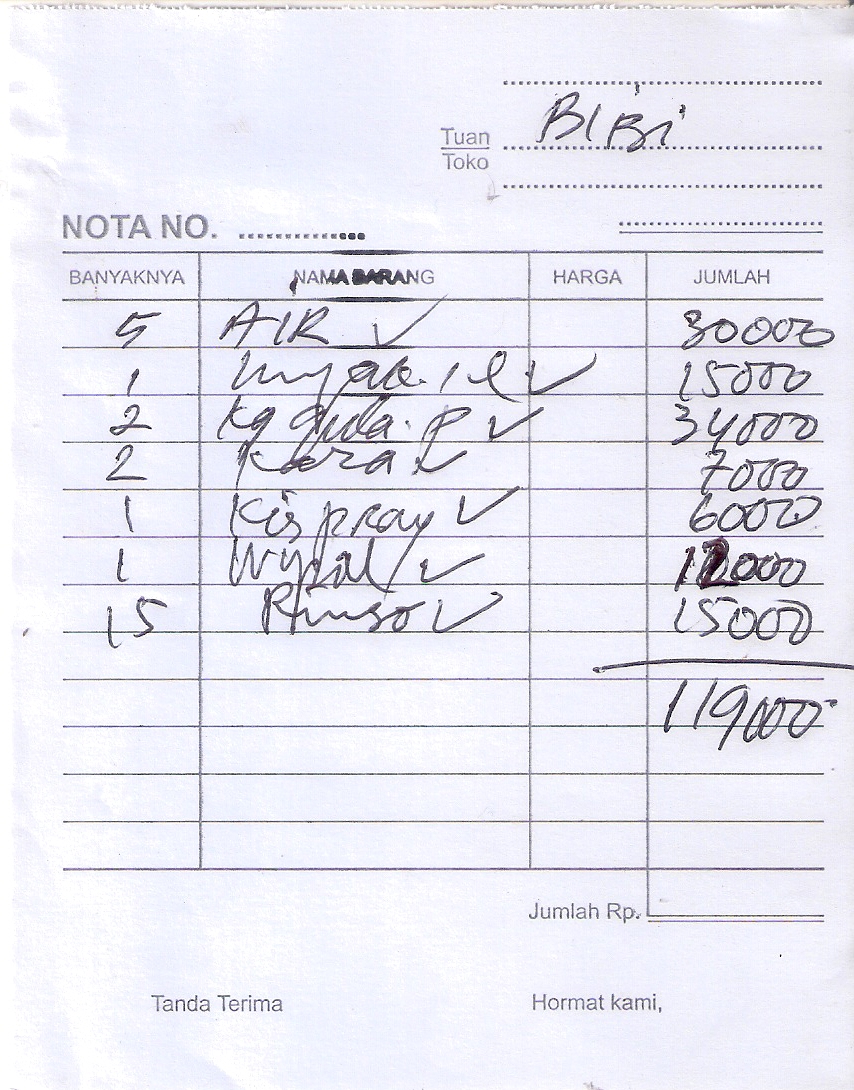 BIBi
Tuan
Toko
NOTA NO. ..............
BANYAKNYA NAMA BARANG HARGA JUMLAH
5 AIR ✓ 30000
1 minyak 1 l ✓ 15000
2 kg gula. P ✓ 34000
2 Kara ✓ 7000
1 Kispray ✓ 6000
1 Wypal ✓ 12000
15 Rinso ✓ 15000
119000
Jumlah Rp.
Tanda Terima Hormat kami,